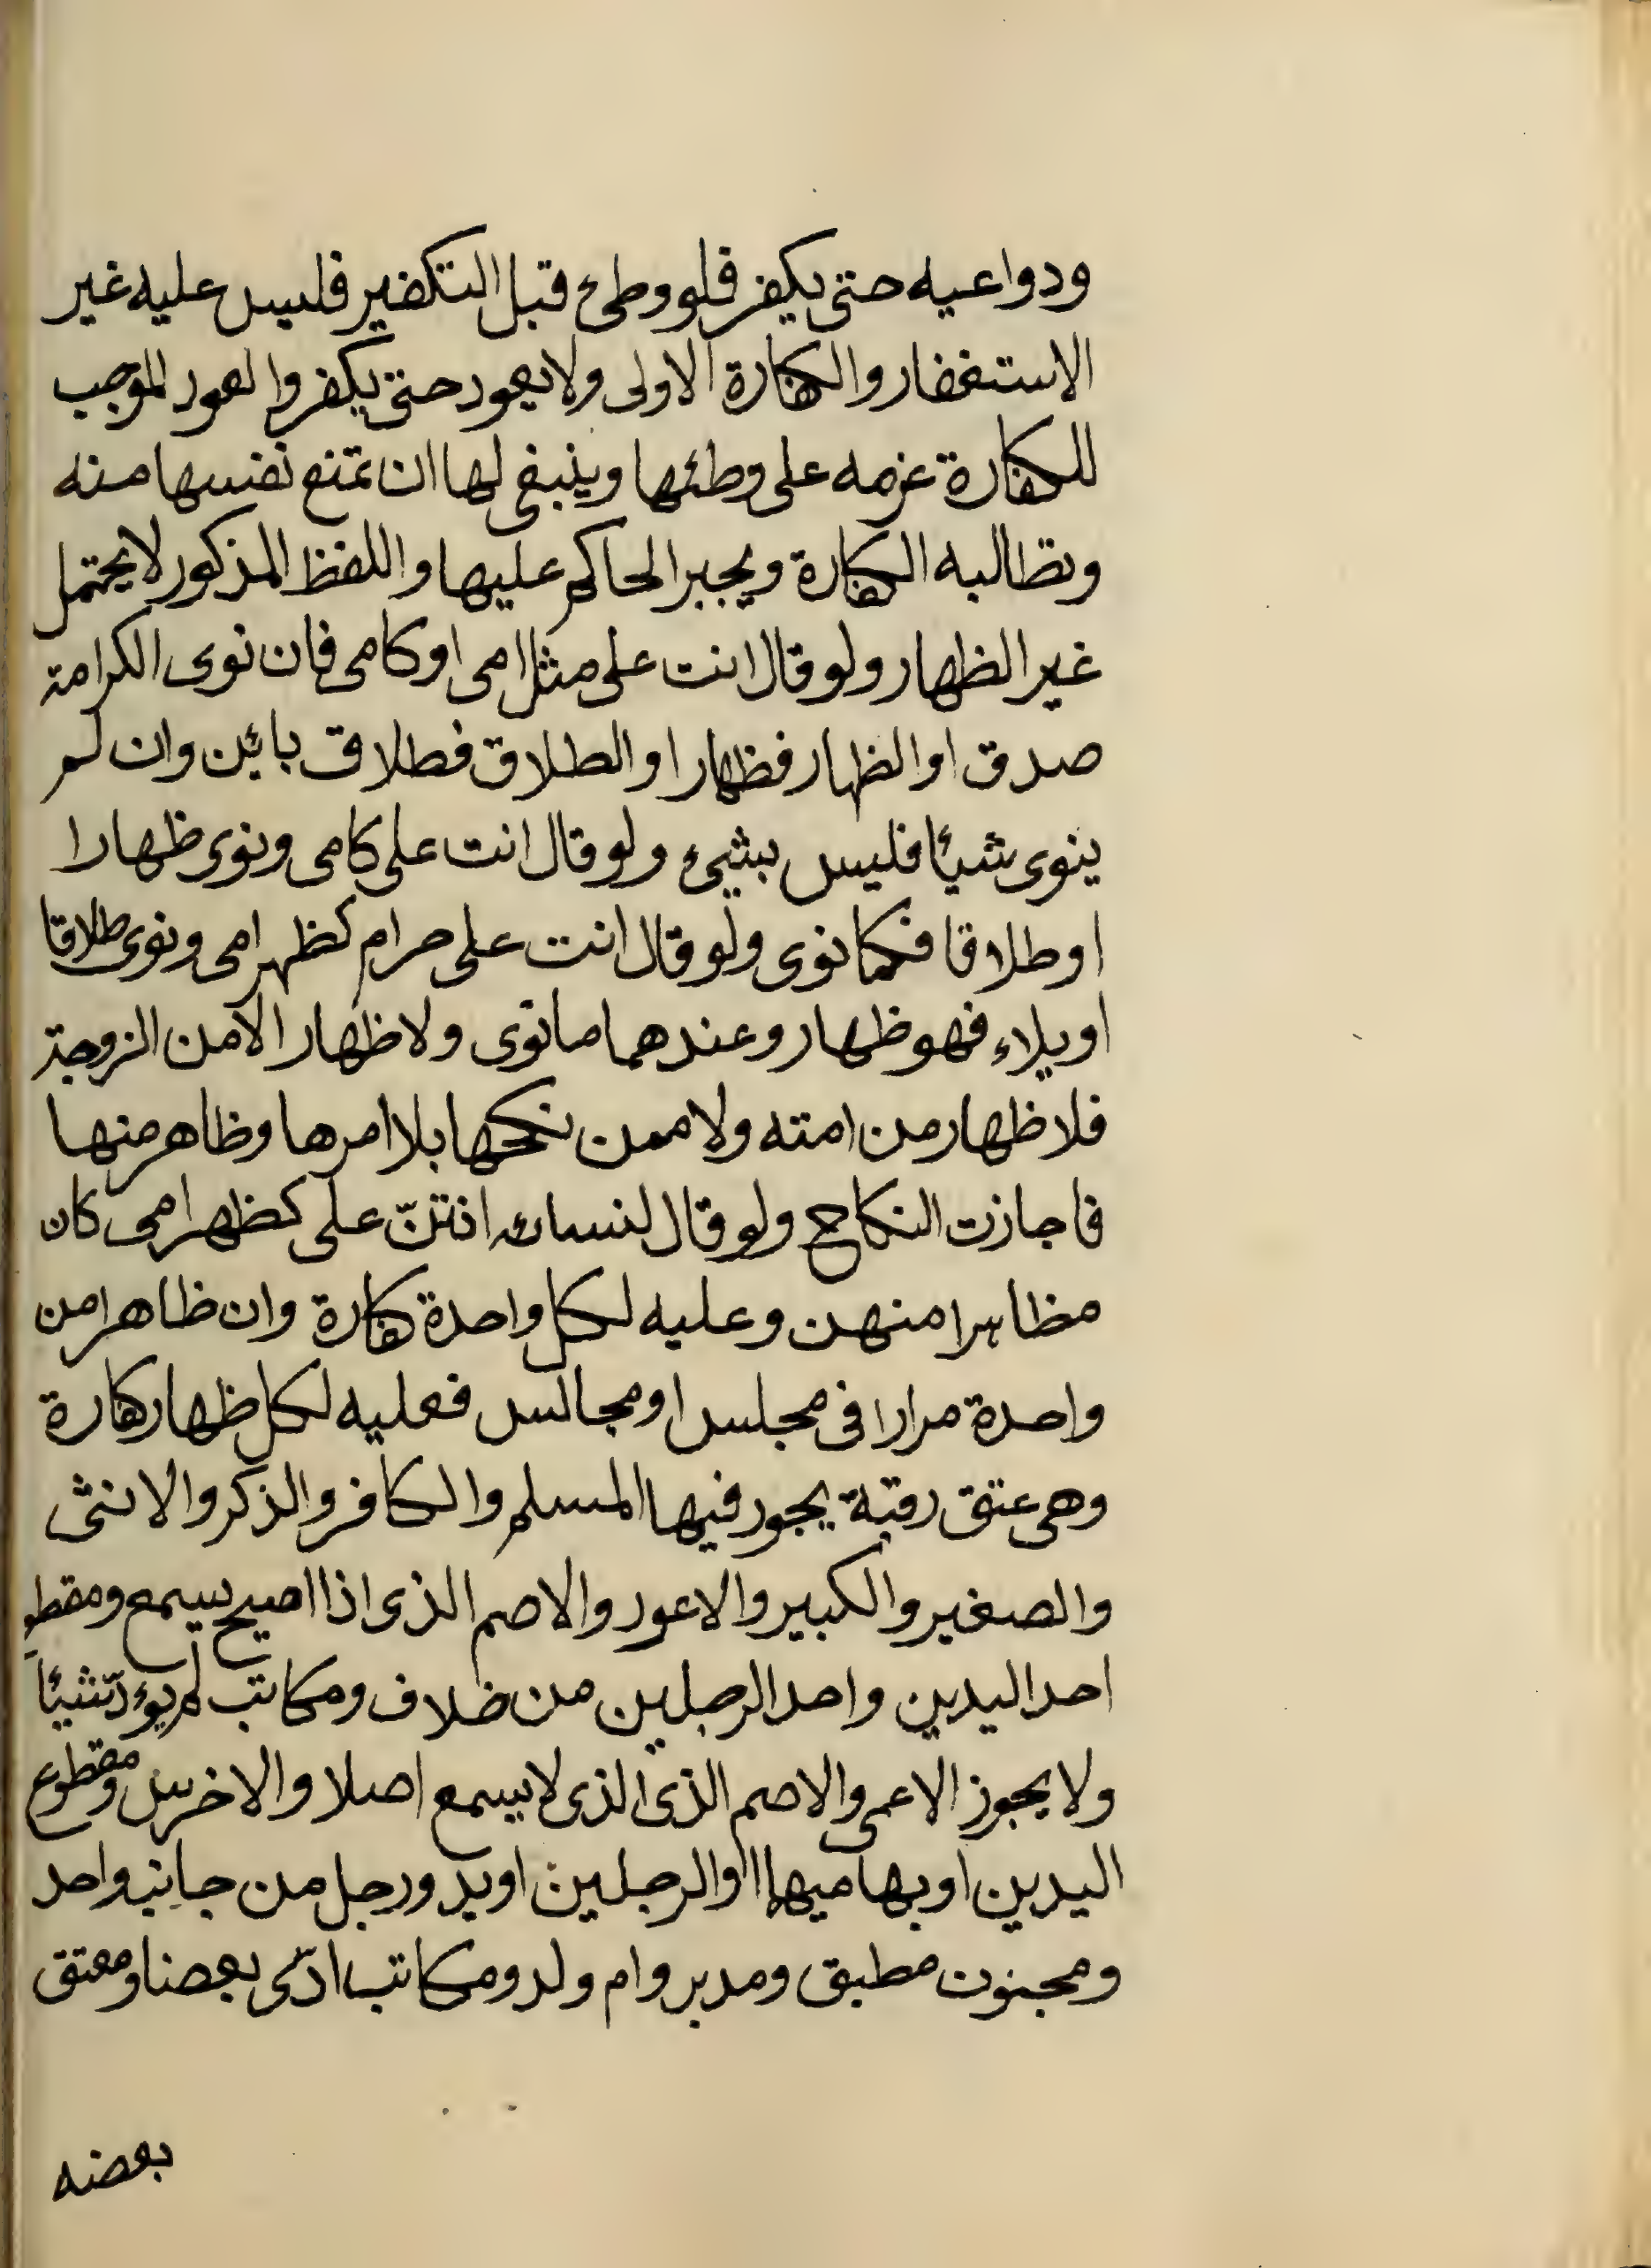 ودواعيه حتى يكفر فلو وطئ قبل التكفير فليس عليه غير
الاستغفار والكفارة الاولى ولا يعود حتى يكفر والعود الموجب
للكفارة عزمه على وطئها وينبغى لها ان تمنع نفسها منه
وتطالبه الكفارة ويجبر الحاكم عليها واللفظ المذكور لا يحتمل
غير الظهار ولو قال انت على مثل امى او كامى فان نوى الكرامة
صدق او الظهار فظهار او الطلاق فطلاق بائن وان لم
ينوى شيئا فليس بشيء ولو قال انت على كامى ونوى ظهارا
او طلاقا فكما نوى ولو قال انت على حرام كظهر امى ونوى طلاقا
او يلاء فهو ظهار وعندهما ما نوى ولا ظهار الا من الزوجة
فلا ظهار من امته ولا ممن نكحها بلا امرها وظاهر منها
فاجازت النكاح ولو قال لنسائه انتنّ على كظهر امى كان
مظاهرا منهن وعليه لكل واحدة كفارة وان ظاهر امن
واحدة مرارا فى مجلس او مجالس فعليه لكل ظهار كفارة
وهى عتق رقبة يجور فيها المسلم والكافر والذكر والانثى
والصغير والكبير والاعور والاصم الذى اذا اصيح يسمع ومقطو
احد اليدين واحد الرجلين من خلاف ومكاتب لم يؤدّ شيئا
ولا يجوز الاعمى والاصم الذى الذى لا يسمع اصلا والاخرس ومقطوع
اليدين او بهاميهما او الرجلين او يد ورجل من جانب واحد
ومجنون مطبق ومدبر وام ولد ومكاتب ادّى بعضا ومعتق
بعضه